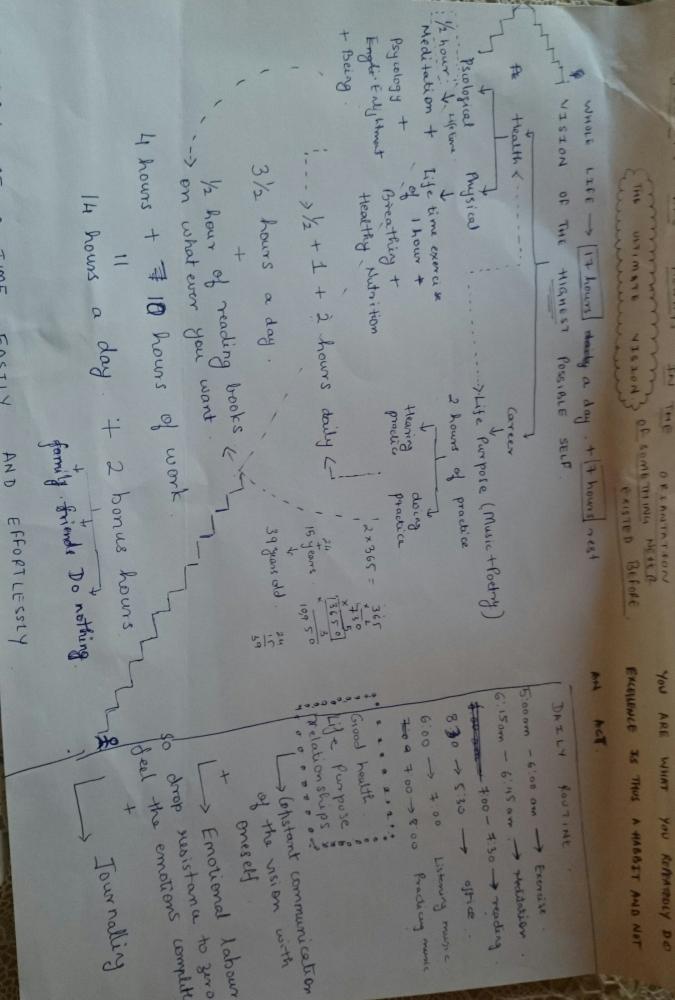 IN THE ORGANITATION
THE ULTIMATE VISION OF SOMETHING NEVER
EXISTED BEFORE
YOU ARE WHAT YOU REPEATADLY DO
EXCELLENCE IS THUS A HABBIT AND NOT
AN ACT.
WHOLE LIFE → 17 hours a day + 7 hours rest
VISION OF THE HIGHEST POSSIBLE SELF.
Health
Career
Psicological
Physical
Life Purpose (Music + Poetry)
1/2 hour Life time
Meditation +
Psycology +
Enlightment
+ Being.
Life time exercise
of 1 hour +
Breathing +
Healthy Nutrition
2 hours of practice
Hearing practice
doing practice
1/2 + 1 + 2 hours daily
3 1/2 hours a day.
+
1/2 hour of reading books
on what ever you want.
4 hours + 10 hours of work.
"
14 hours a day + 2 bonus hours
family. friends Do nothing.
2 x 365 =
365
x 2
730
x 5
3650
x 3
10,950
24
+
15 years.
39 years old.
24
15
39
DAILY ROUTINE
5:00 am - 6:00 am → Exercise.
6:15 am - 6:45 am → Meditation.
7:00 - 7:30 → reading
8:30 → 5:30 → office.
6:00 → 7:00 Listening music
7:00 → 8:00 Practicing music
Good health.
Life Purpose
Relationships
Constant communication
of the vision with
oneself.
+
Emotional labour
so drop resistance to zero
feel the emotions complete
+
Journalling
TIME EASILY AND EFFORTLESSLY